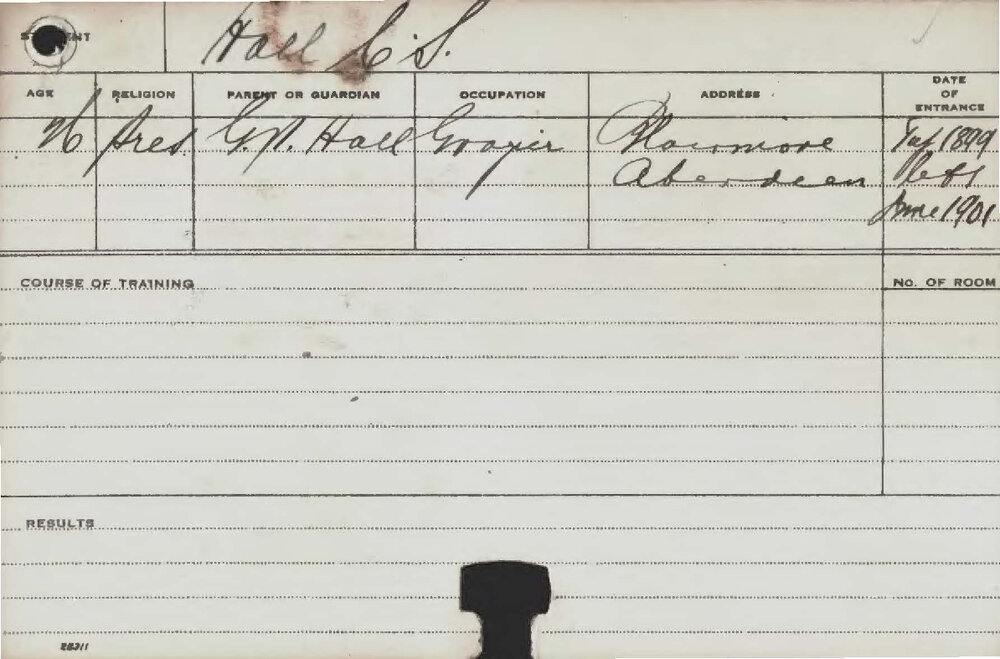 STUDENT
Hall C. S.
AGE RELIGION PARENT OR GUARDIAN OCCUPATION ADDRESS DATE OF ENTRANCE
Pres G. N. Hall Grazier Blairmore 1899
Aberdeen left
June 1901
COURSE OF TRAINING No. OF ROOM
RESULTS